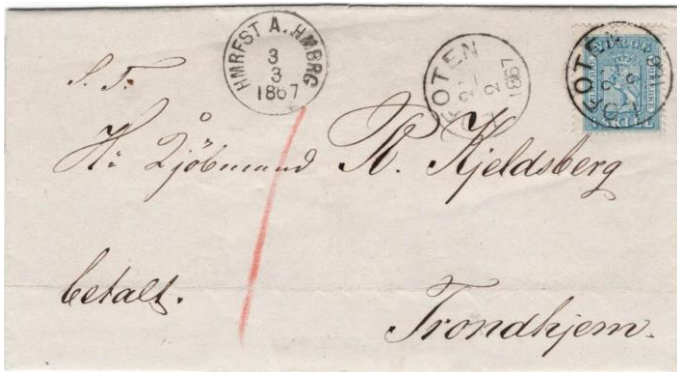 HMRFST A. HMBRG
3
3
1867
FOTEN
2
1867
FOTEN
S. T.
Hr Kjöbmand R. Kjeldsberg
betalt.
Trondhjem.